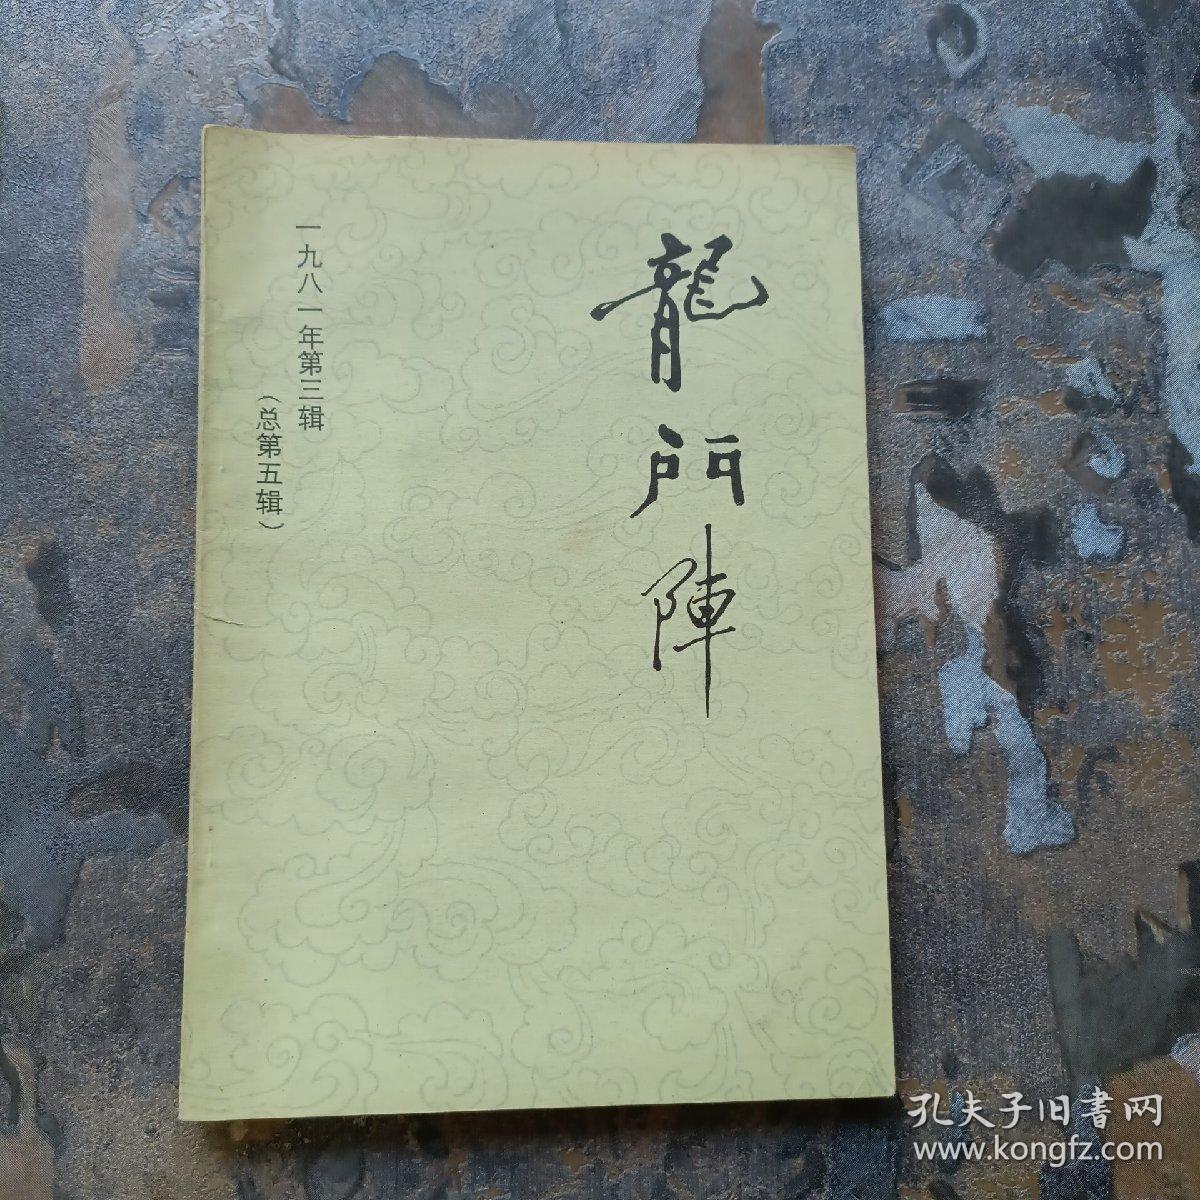 龍門陣
一九八一年第三辑
（总第五辑）
孔夫子旧書网
www.kongfz.com